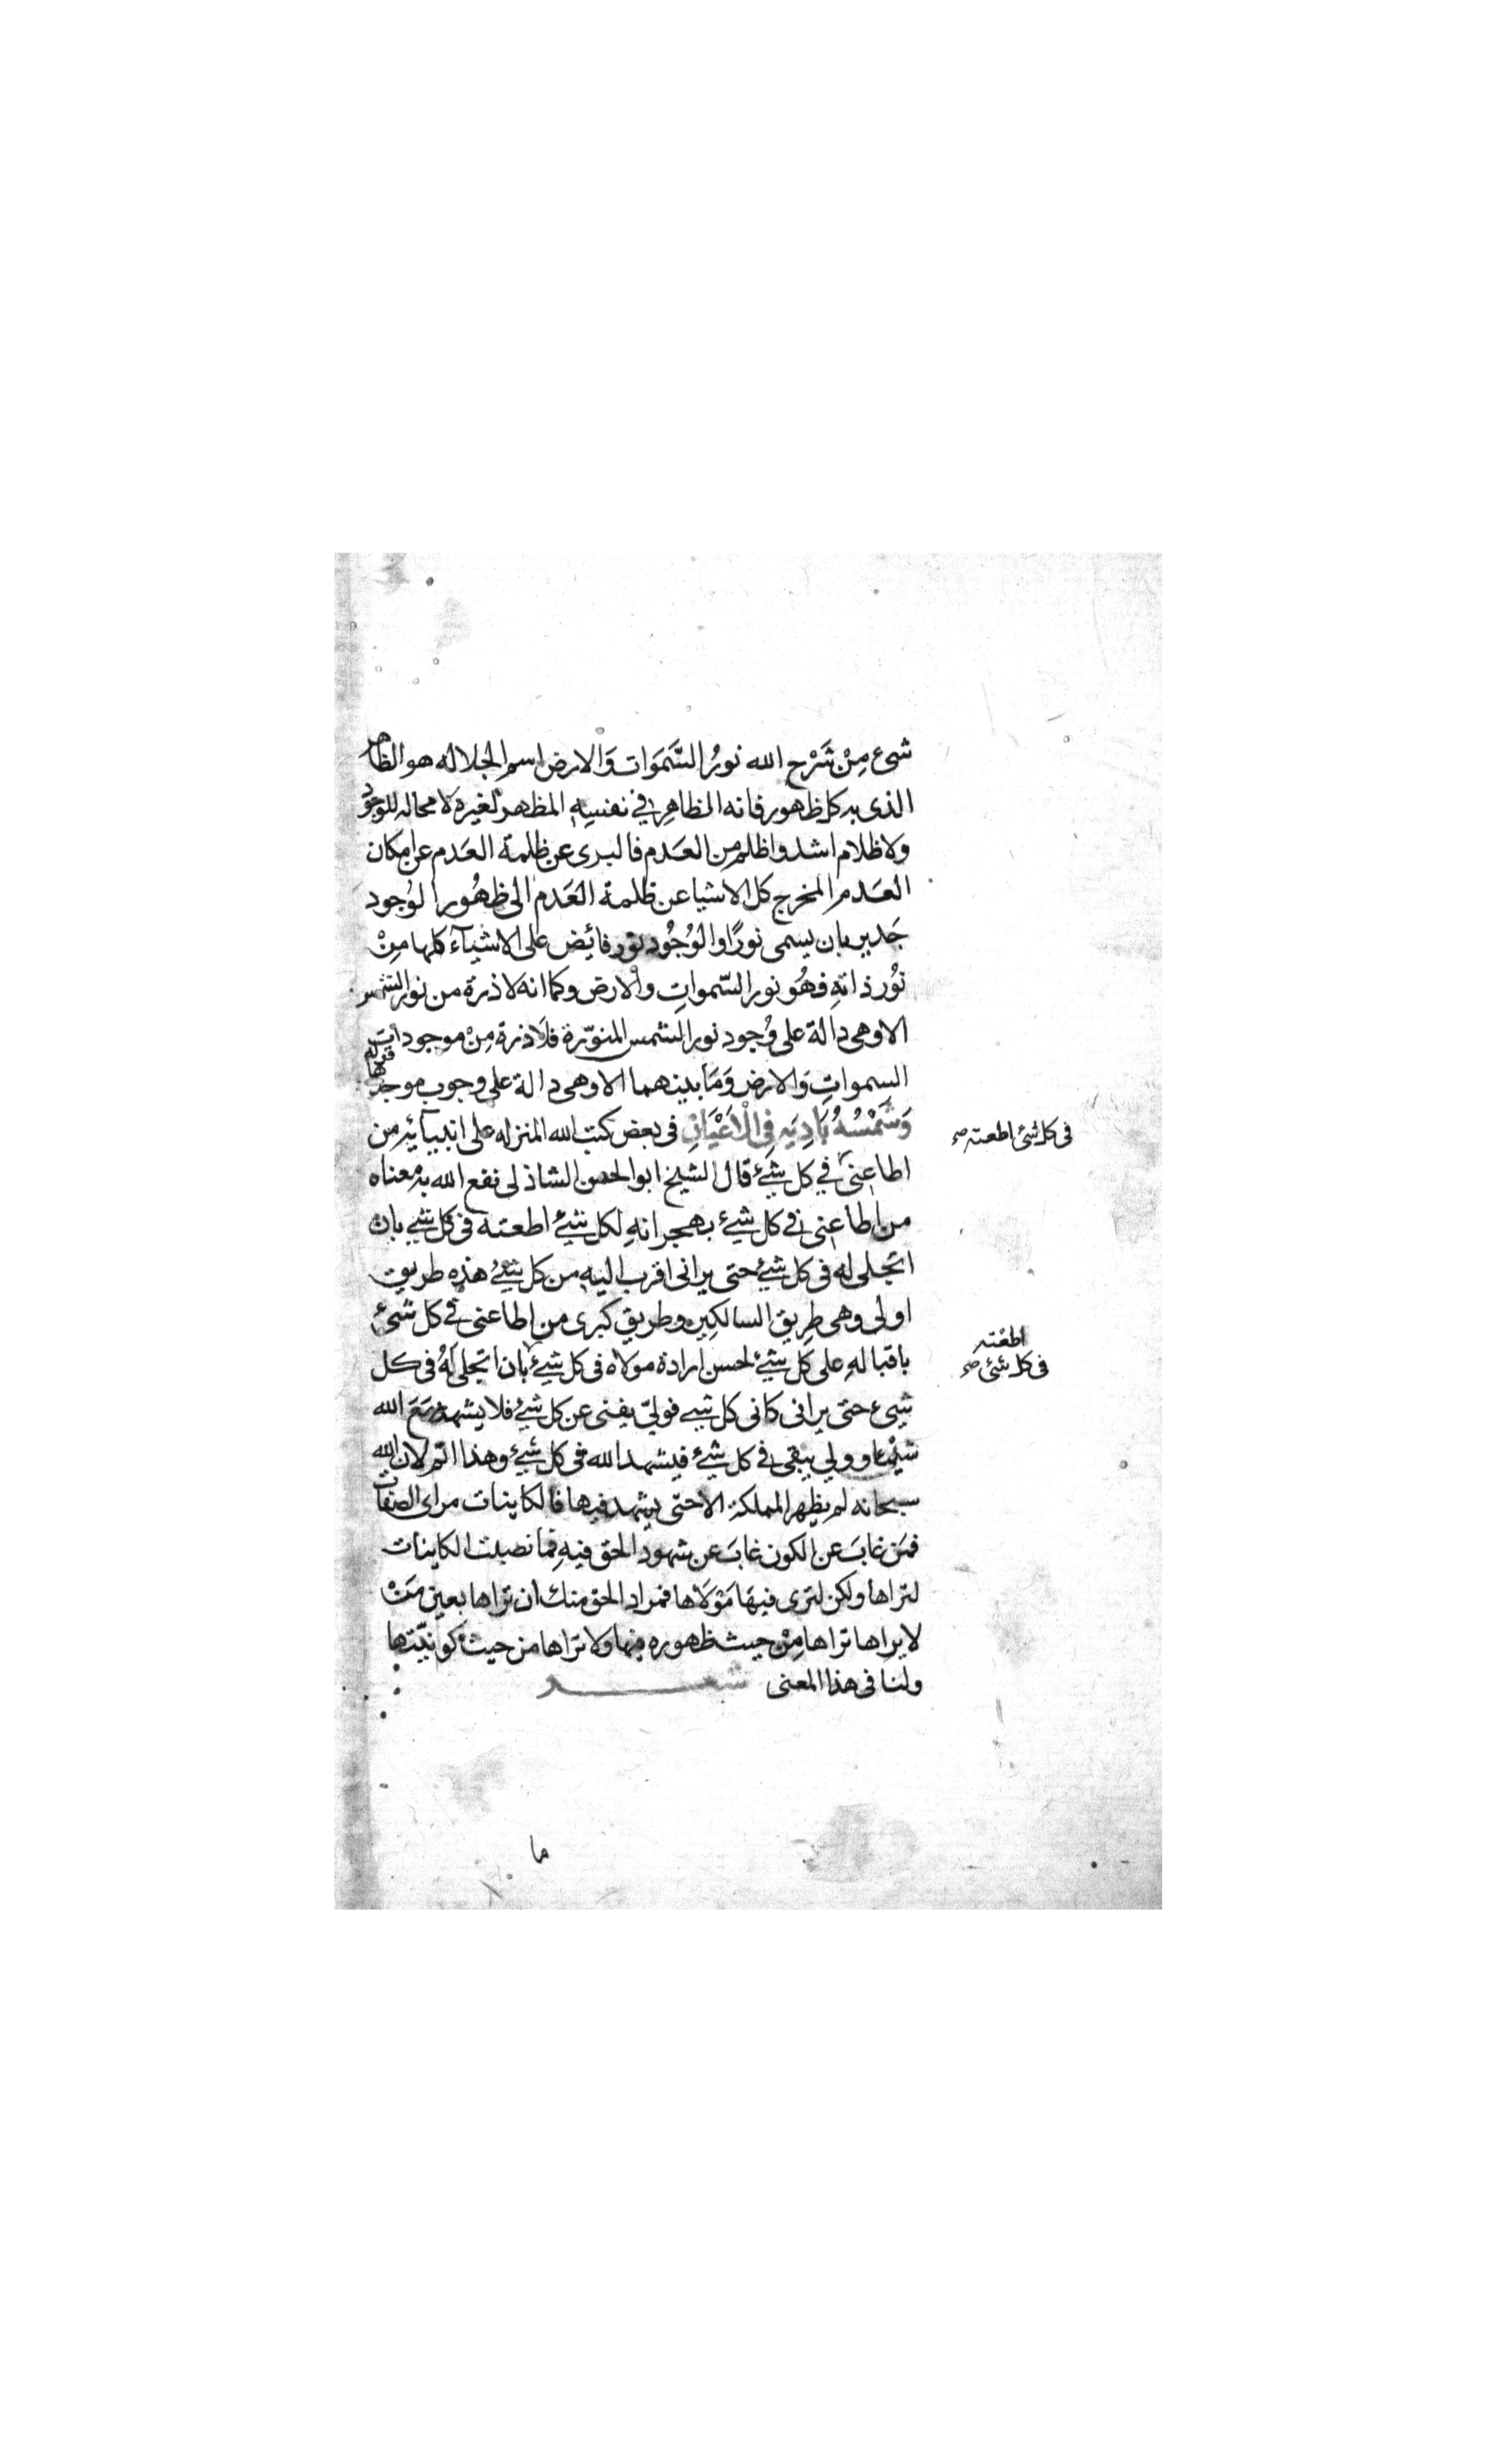 شىء مِنْ شَرْح الله نورُ السَّمَوَات وَالارض اسم الجلاله هو الظاهر
الذى به كل ظهور فانه الظاهر في نفسِهِ المظهر لغيره لا محاله للوجود
ولا ظلام اشد واظلم من العَدم فالبرى عن ظلمة العَدم عن امكان
العَدم المخرج كل الاشيا عن ظلمة العَدم الى ظهُور الوُجود
جَدير بان يسمى نورًا والوُجُود نور فائض على الاشيآء كلها مِنْ
نُور ذاتهِ فهُو نور السّمواتِ والارض وكما انه لا ذرة من نور الشمس
الا وهى دالة على وُجود نور الشمس المنوّرة فلَا ذرة مِنْ موجودات
السمواتِ وَالارض وَمَا بينهما الا وهى دالة على وجوب موجدها قوله
وَشَمْسُهُ بَادِيَه فِى الْاَعْيَانِ فى بعض كتب الله المنزله على انبيآئه من
فى كل شئ اطعته صح
اطاعنى في كل شيءٔ قال الشيخ ابو الحسن الشاذلى نفع الله به معناه
من اطاعنى في كل شيءٔ بهجرانهِ لكل شيءٔ اطعته فى كل شيء بان
اتجلى له فى كل شيءٔ حتى يرانى اقرب اليهِ من كل شيءٔ هذهِ طريق
اولى وهى طريق السالكين وطريق كبرى من اطاعنى في كل شىءٔ
اطعْته
فى كل شئ صح
باقبالهِ على كل شيءٔ لحسن ارادة مولاه فى كل شيءٔ بان اتجلى لَهُ فى كل
شيىء حتى يرانى كانى كل شيء فوليّ يفنى عن كل شيءٔ فلا يشهد مَعَ الله
شيْئا وولي يبقى في كل شيءٔ فيشهد الله فى كل شيءٔ وهذا اتم لان الله
سبحانه لم يظهر المملكة الا حتى يشهد فيها فالكاينات مراى الصفات
فمَن غابَ عن الكون غابَ عن شهود الحق فيهِ فما نصبت الكاينات
لتراها ولكن لترى فيهَا مَوْلَاها فمراد الحق منك ان تراها بعين مَنْ
لا يراها تراها مِنْ حيث ظهوره فيها ولا تراها من حيث كونيّتها
ولنا فى هذا المعنى شعـــر
ما